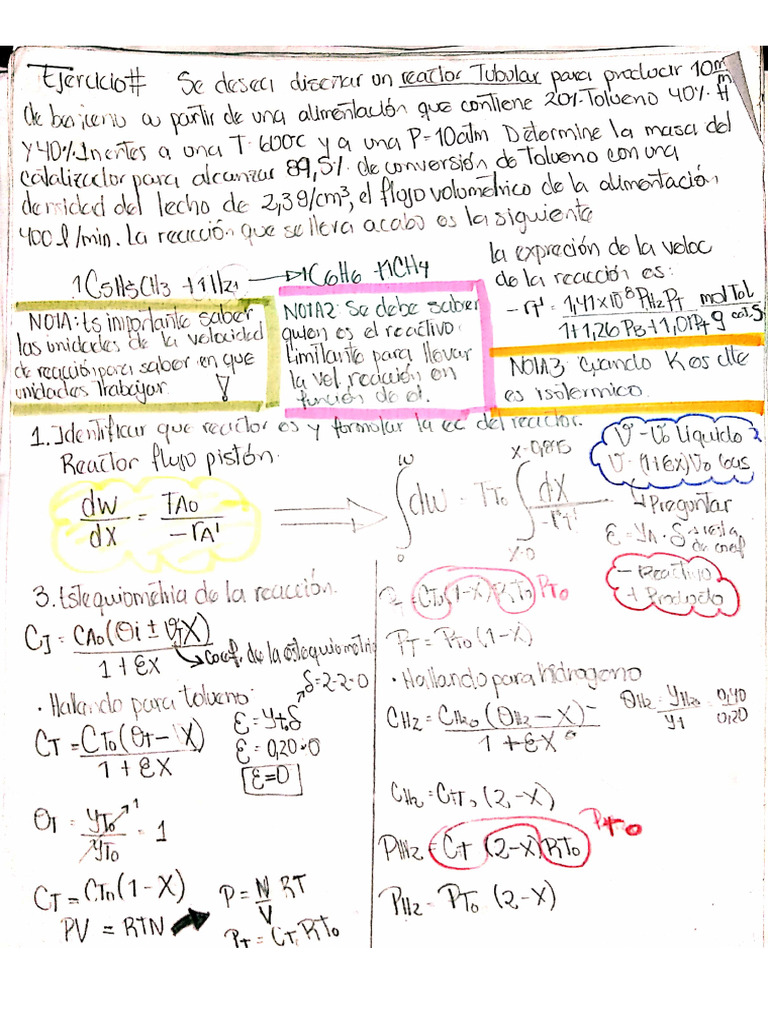 Ejercicio# Se desea diseñar un reactor Tubular para producir 10
de benceno a partir de una alimentación que contiene 20% Tolueno 40% H
y 40% Inertes a una T=600c y a una P=10atm Determine la masa del
catalizador para alcanzar 89,5% de conversión de Tolueno con una
densidad del lecho de 2,3g/cm³, el flujo volumétrico de la alimentación
400 l/min. la reacción que se lleva acabo es la siguiente
1C5H5CH3 + 1H2 → 1C6H6 + 1CH4
la expreción de la veloc
de la reacción es:
-rT' = 1,41x10⁻⁸ PH2 PT / 1+1,26PB+1,01PT mol Tol / g cat.S
NOTA: Es importante saber
las unidades de la velocidad
de reacción para saber en que
unidades Trabajar. !
NOTA2: Se debe saber
quien es el reactivo
Limitante para llevar
la vel. reacción en
función de el.
NOTA3: Cuando K es cte
es isotermico.
1. Identificar que reactor es y formular la ec del reactor.
Reactor flujo pistón.
dW/dX = FAo/-rA'
∫₀ᵂ dW = FTo ∫ dX/-rT'
X=0,895
X=0
V=Vo Líquido
V=(1+εX)Vo Gas
Preguntar
ε = yA · δ → resta de coef
- Reactivo
+ Producto
3. Estequiometria de la reacción.
CJ = CAo(θi ± ϑJX)/1+εX
coef. de la estequiometria
• Hallando para tolueno:
δ=2-2=0
CT = CTo(θT - X)/1+εX
ε = yTo δ
ε = 0,20*0
ε=0
θT = yTo/yTo = 1
CT = CTo(1-X)
PV = RTN
P = N/V RT
PT = CT RTo
PT = CTo(1-X)RTo PTo
PT = PTo(1-X)
• Hallando para hidrogeno
CH2 = CH2o(θH2 - X)/1+εX
θH2 = yH2o/yT = 0,40/0,20
CH2 = CTo(2-X)
PH2 = CT (2-X)RTo PTo
PH2 = PTo (2-X)